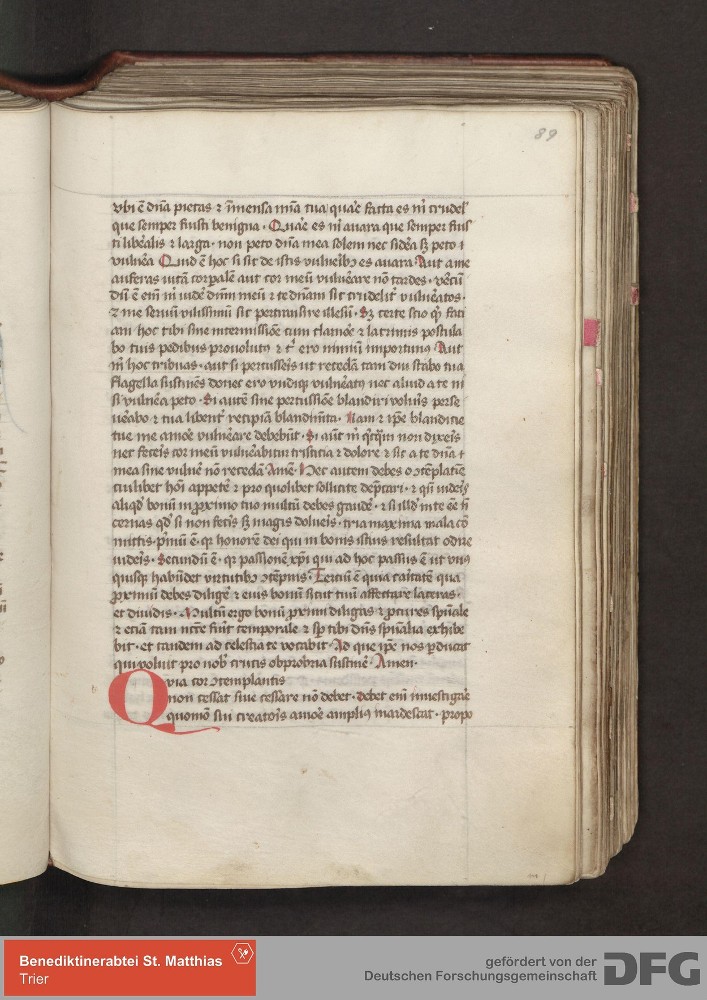 89
vbi ē dn̄a pietas ⁊ īmensa mīa tua quaʼe facta es mʼ crudelʼ
que semper fuisti benigna · Quaʼe es mʼ auara que semper fuisʼ
ti libeʼalis ⁊ larga · non peto dn̄a mea solem nec sideʼa sꝫ peto
vulneʼa Quid ē hoc si sit de istis vulneʼibꝫ es auara · Aut a me
auferas uitā corpalē aut cor meū vulneʼare nō tardes ·
dū ē em̄ mʼ uideʼ dn̄m meū ⁊ te dn̄am sic crudelitʼ vulneʼatos ·
⁊ me seruū vilissimū sic pertransire illesū · Sꝫ certe scio qꝫ
am hoc tibi sine intermissiōe cum clamoʼe ⁊ lacrimis postula
bo tuis pedibus prouolutꝰ ⁊ ero nimiū importunꝰ Aut
mʼ hoc tribuas · aut si percusseis ut recedā tam diu stabo tua
flagella sustinēs donec ero vndiqꝫ vulneʼatꝰ nec aliud a te nʼ
sʼ vulneʼa peto · Si autē sine percussiōe blandiri voluʼis perse
ueʼabo ⁊ tua libentʼ recipiā blandimʼta · Nam ⁊ ip̄e blanditie
tue me amoʼe vulneʼare debebūt · Si aūt mʼ non dixeʼis
nec feceʼis cor meū vulneʼabitur tristitia ⁊ dolore ⁊ sic a te dn̄a
mea sine vulneʼ nō recedā Amē · Hec autem debes ↄtēplatiōe
cuilibet hoī appeteʼ ⁊ pro quolibet sollicite dep̄cari · ⁊ qn̄ uideʼis
aliqd̄ bonū in ꝓximo tuo multū debes gaudeʼ · ⁊ si illd̄ in te eē nʼ
cernas qd̄ si non fecʼis sꝫ magis doluʼis · tria maxima mala cō
mittis · pʼmū ē · qꝛ honorē dei qui in bonis istius resultat odire
uideʼis · Secundū ē · qꝛ passionē xp̄i qui ad hoc passus ē ut vnꝰ
quisqꝫ habūdet virtutibꝫ ↄtēpnis · Tertiū ē quia caʼitatē qua
ꝓximū debes diligeʼ ⁊ eius bonū sicut tuū affectare laceras ·
et diuidis · Multū ergo bonū ꝓximi diligas ⁊ ꝓcures sp̄uale
⁊ eciā tam fuʼit temporale ⁊ sp̄ tibi dn̄s sp̄ualia exhibe
bit · et tandem ad celestia te vocabit · Ad que ip̄e nos pducat
qui voluit pro nobʼ crucis obprobria sustineʼ · Amen ·
Qvia cor ↄtemplantis
non cessat siue cessare nō debet · debet em̄ inuestigaʼe
quomō sui creatoʼis amoʼe ampliꝰ inardescat · propo
Benediktinerabtei St. Matthias
Trier
gefördert von der
Deutschen Forschungsgemeinschaft
DFG